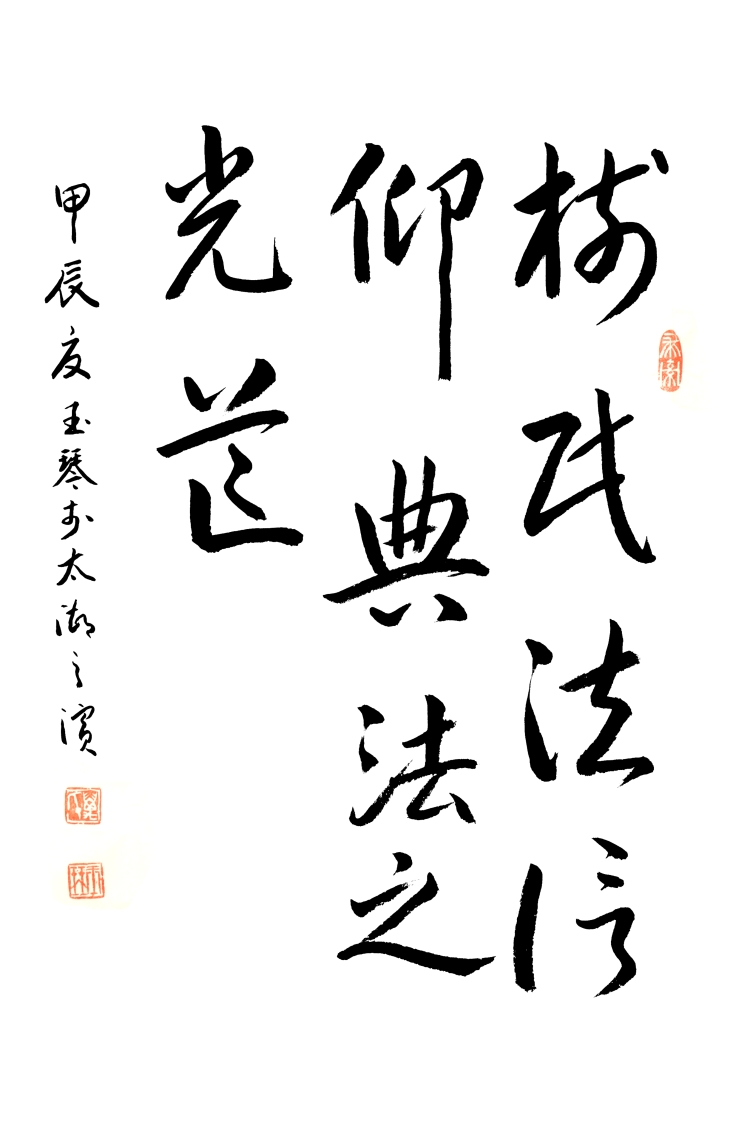 树民法信
仰典法之
光芒
甲辰夏玉琴於太湖之濱